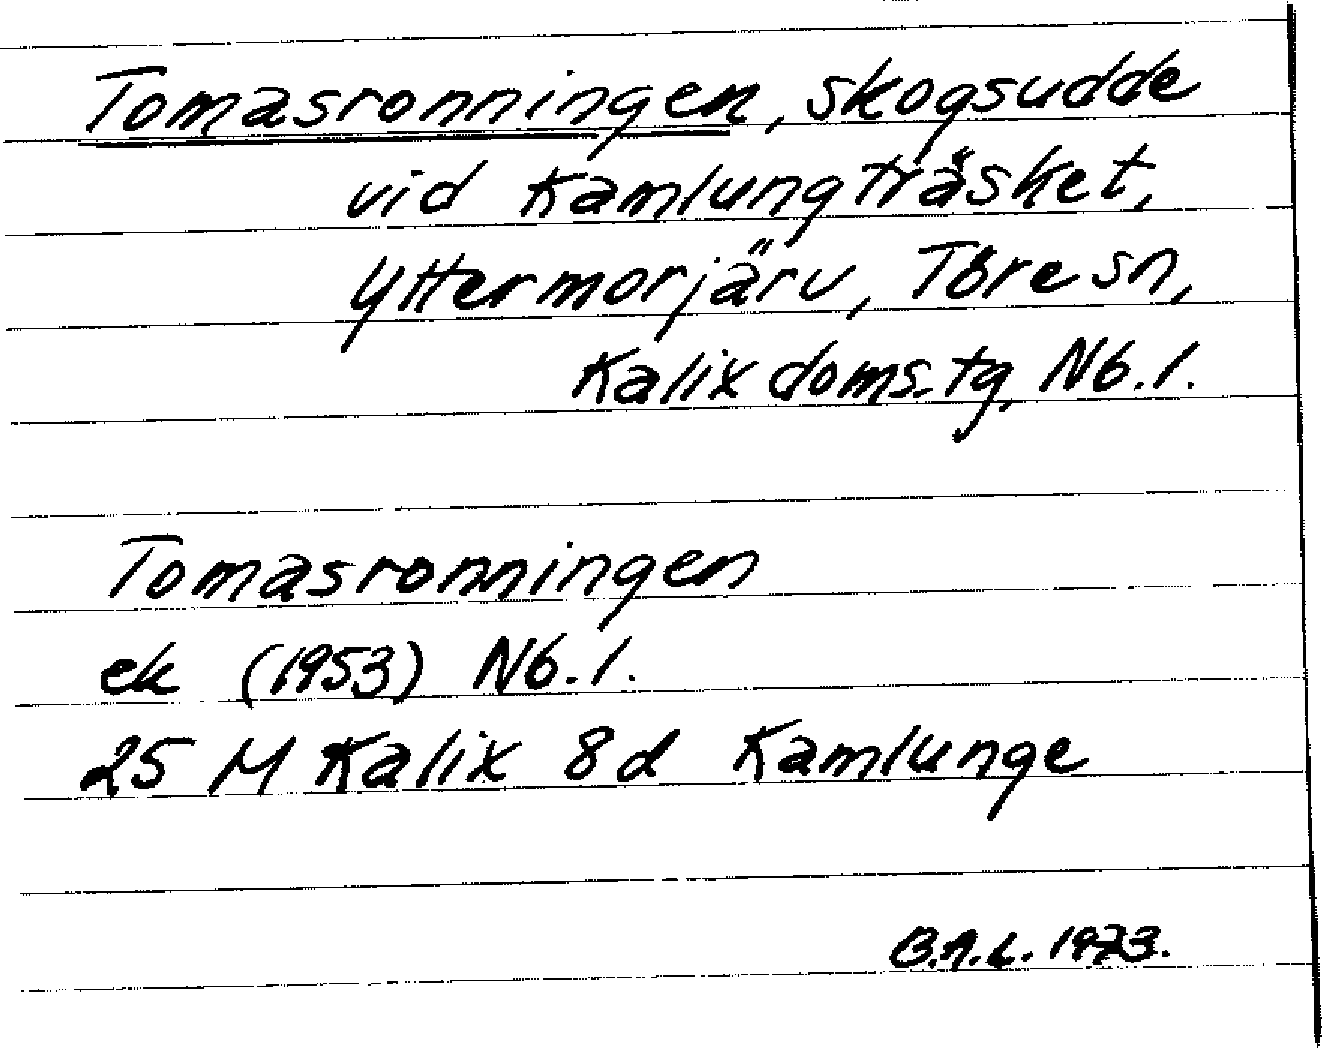 Tomasronningen, skogsudde
vid Kamlungträsket,
Yttermorjärv, Töre sn,
Kalix doms.tg, Nb.l.
Tomasronningen
ek (1953) Nb.l.
25 M Kalix 8d Kamlunge
B.A.L. 1973.